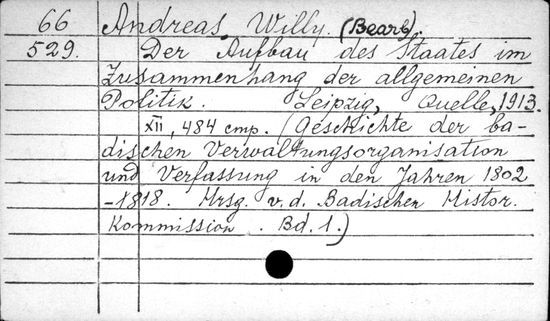 66 Andreas, Willy. (Bearb).
529. Der Aufbau des Staates im
Zusammenhang der allgemeinen
Politik. Leipzig, Quelle, 1913.
XII, 484 стр. (Geschichte der ba-
dischen Verwaltungsorganisation
und Verfassung in den Jahren 1802
-1818. Hrsg. v. d. Badischen Histor.
Kommission. Bd. 1.)